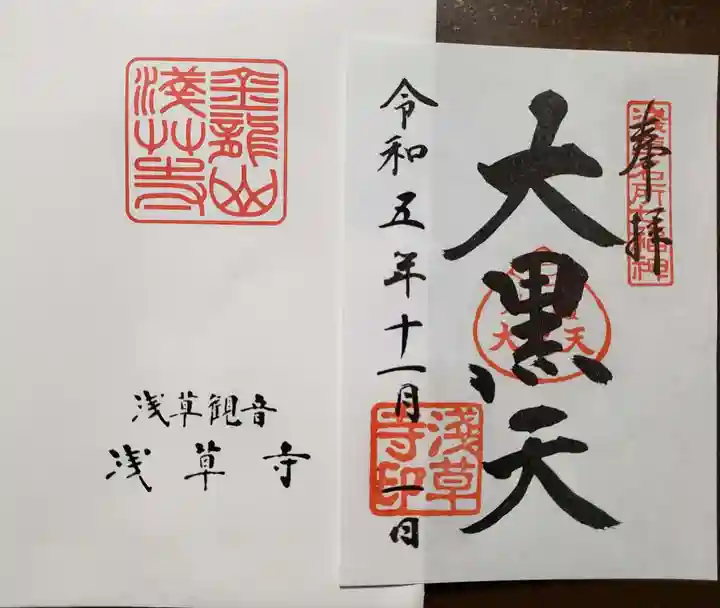 金龍山
淺草寺
浅草観音
浅草寺
奉拝
淺草名所七福神
大黒天
令和五年十一月一日
淺草
寺印